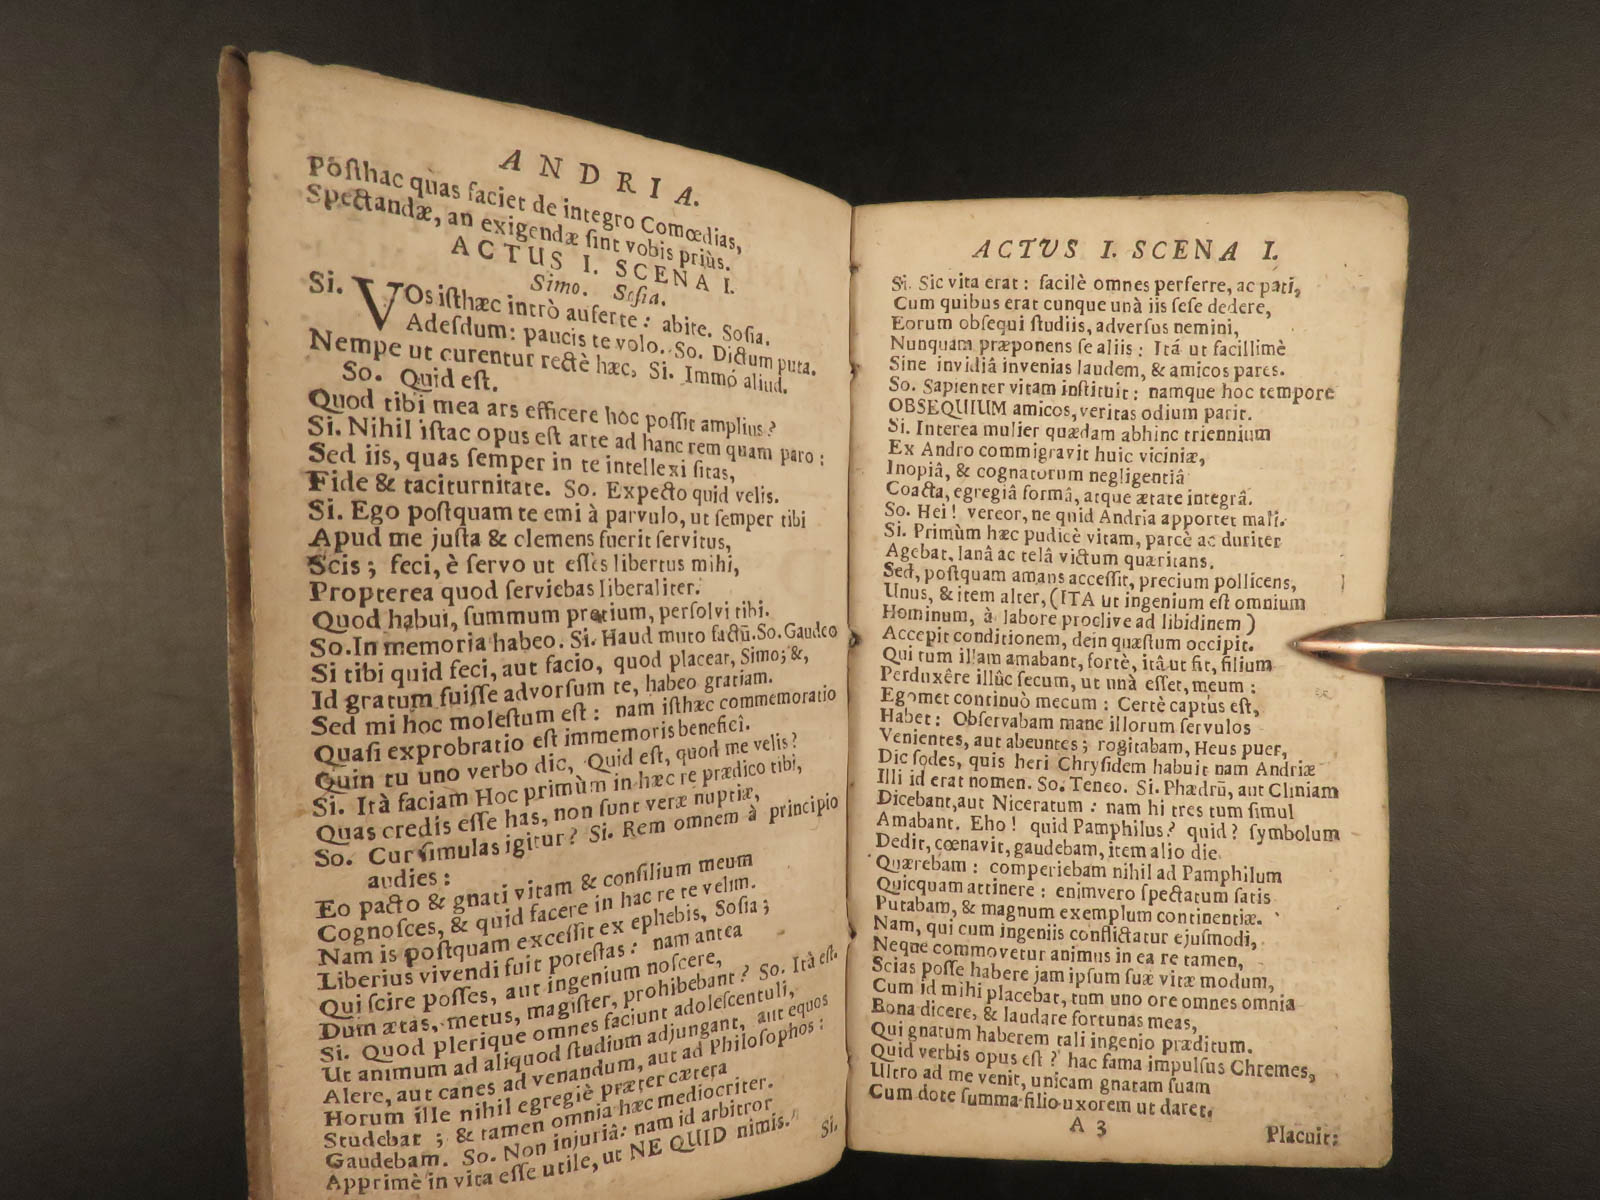 ANDRIA.
Poſthac quas faciet de integro Comœdias,
Spectandæ, an exigendæ ſint vobis priùs.
ACTUS I. SCENA I.
Simo. Soſia.
Si. VOs iſthæc intrò auferte: abite. Soſia.
Adeſdum: paucis te volo. So. Dictum puta.
Nempe ut curentur rectè hæc, Si. Immó aliud.
So. Quid eſt.
Quod tibi mea ars efficere hoc poſſit amplius?
Si. Nihil iſtac opus eſt arte ad hanc rem quam paro:
Sed iis, quas ſemper in te intellexi ſitas,
Fide & taciturnitate. So. Expecto quid velis.
Si. Ego poſtquam te emi à parvulo, ut ſemper tibi
Apud me juſta & clemens fuerit ſervitus,
Scis; feci, è ſervo ut eſſes libertus mihi,
Propterea quod ſerviebas liberaliter.
Quod habui, ſummum pretium, perſolvi tibi.
So. In memoria habeo. Si. Haud muto factū. So. Gaudeo
Si tibi quid feci, aut facio, quod placeat, Simo; &,
Id gratum fuiſſe advorſum te, habeo gratiam.
Sed mi hoc moleſtum eſt: nam iſthæc commemoratio
Quaſi exprobratio eſt immemoris beneficî.
Quin tu uno verbo dic, Quid eſt, quod me velis?
Si. Itâ faciam Hoc primùm in hæc re prædico tibi,
Quas credis eſſe has, non ſunt veræ nuptiæ,
So. Cur ſimulas igitur? Si. Rem omnem à principio
audies:
Eo pacto & gnati vitam & conſilium meum
Cognoſces, & quid facere in hac re te velim.
Nam is poſtquam exceſſit ex ephebis, Soſia;
Liberius vivendi fuit poteſtas: nam antea
Qui ſcire poſſes, aut ingenium noſcere,
Dum ætas, metus, magiſter, prohibebant? So. Itâ eſt.
Si. Quod plerique omnes faciunt adoleſcentuli,
Ut animum ad aliquod ſtudium adjungant, aut equos
Alere, aut canes ad venandum, aut ad Philoſophos:
Horum ille nihil egregiè præter cætera
Studebat; & tamen omnia hæc mediocriter.
Gaudebam. So. Non injuriâ: nam id arbitror
Apprimè in vita eſſe utile, ut NE QUID nimis.
Si.
ACTVS I. SCENA I.
Si. Sic vita erat: facilè omnes perferre, ac pati,
Cum quibus erat cunque unà iis ſeſe dedere,
Eorum obſequi ſtudiis, adverſus nemini,
Nunquam præponens ſe aliis: Itá ut facillimè
Sine invidiâ invenias laudem, & amicos pares.
So. Sapienter vitam inſtituit: namque hoc tempore
OBSEQUIUM amicos, veritas odium parit.
Si. Interea mulier quædam abhinc triennium
Ex Andro commigravit huic viciniæ,
Inopiâ, & cognatorum negligentiâ
Coacta, egregiâ formâ, atque ætate integrâ.
So. Hei! vereor, ne quid Andria apportet mali.
Si. Primùm hæc pudicè vitam, parcè ac duriter
Agebat, lanâ ac telâ victum quæritans.
Sed, poſtquam amans acceſſit, precium pollicens,
Unus, & item alter, (ITA ut ingenium eſt omnium
Hominum, à labore proclive ad libidinem)
Accepit conditionem, dein quæſtum occipit.
Qui tum illam amabant, fortè, itâ ut fit, filium
Perduxêre illûc ſecum, ut unà eſſet, meum:
Egomet continuò mecum: Certè captus eſt,
Habet: Obſervabam mane illorum ſervulos
Venientes, aut abeuntes; rogitabam, Heus puer,
Dic ſodes, quis heri Chryſidem habuit nam Andriæ
Illi id erat nomen. So. Teneo. Si. Phædrū, aut Cliniam
Dicebant, aut Niceratum: nam hi tres tum ſimul
Amabant. Eho! quid Pamphilus? quid? ſymbolum
Dedit, cœnavit, gaudebam, item alio die
Quærebam: comperiebam nihil ad Pamphilum
Quicquam attinere: enimvero ſpectatum ſatis
Putabam, & magnum exemplum continentiæ.
Nam, qui cum ingeniis conflictatur ejuſmodi,
Neque commovetur animus in ea re tamen,
Scias poſſe habere jam ipſum ſuæ vitæ modum,
Cum id mihi placebat, tum uno ore omnes omnia
Bona dicere, & laudare fortunas meas,
Qui gnatum haberem tali ingenio præditum.
Quid verbis opus eſt? hac fama impulſus Chremes,
Ultro ad me venit, unicam gnatam ſuam
Cum dote ſumma filio uxorem ut daret.
A 3
Placuit: